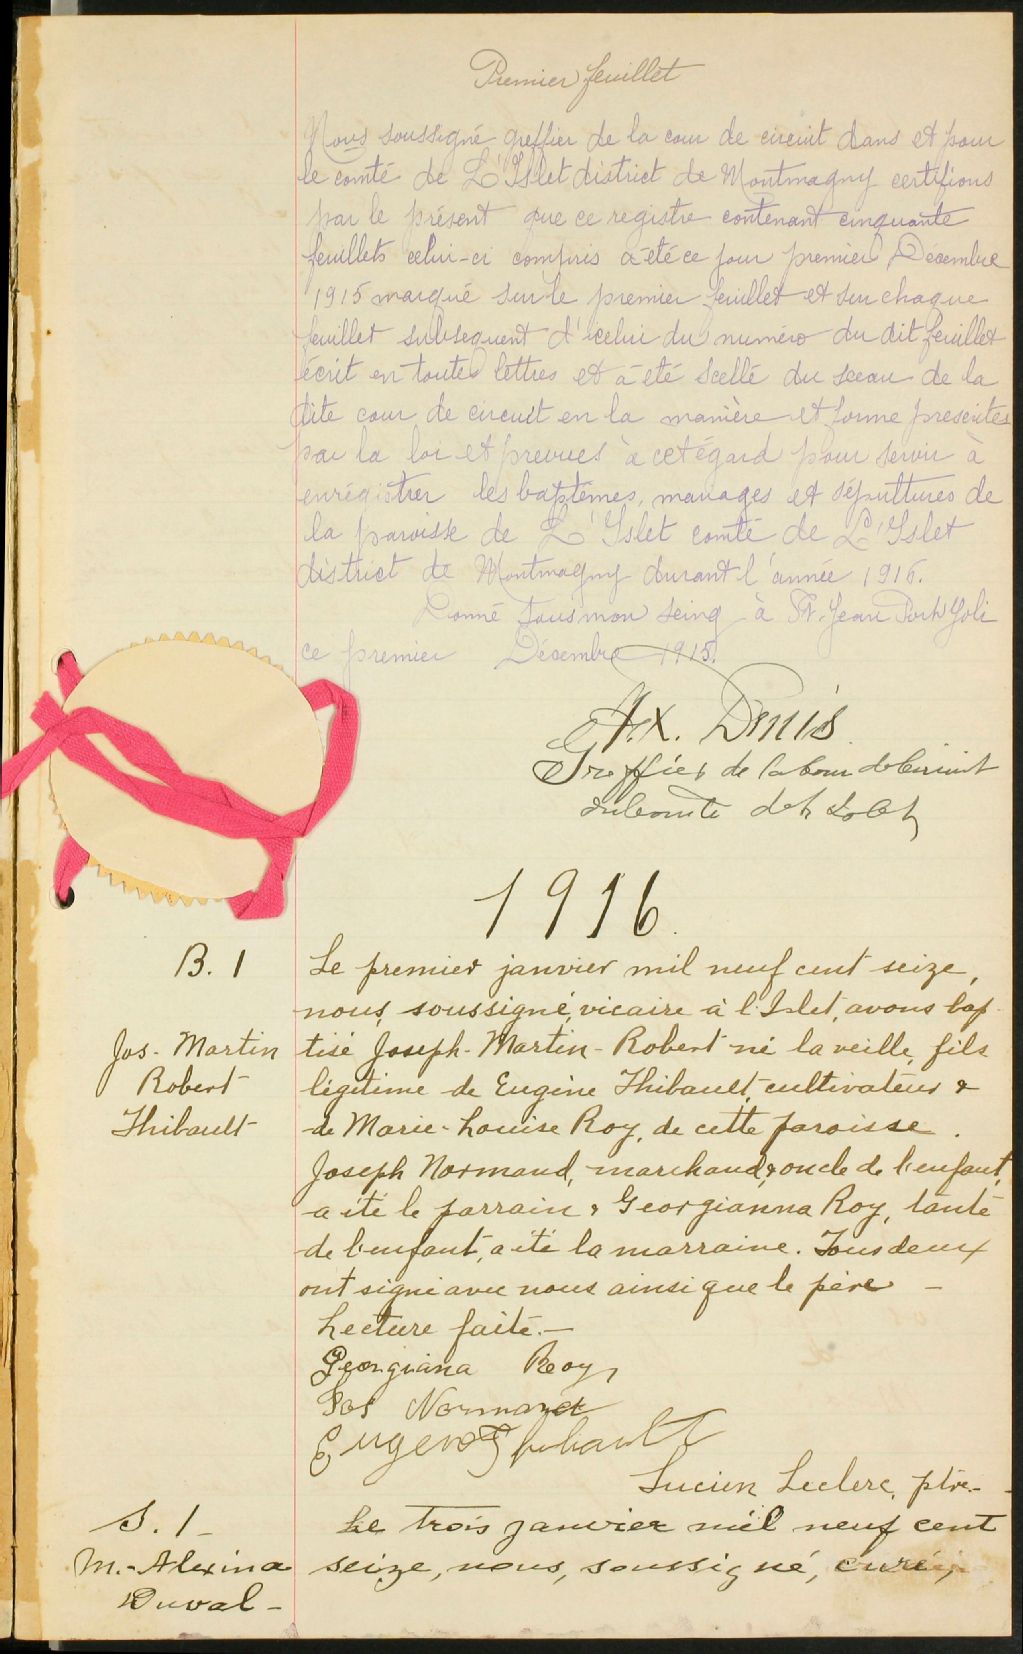 Premier feuillet
Nous soussigné greffier de la cour de circuit dans et pour
le comté de L'Islet district de Montmagny certifions
par le présent que ce registre contenant cinquante
feuillets celui-ci compris a été ce jour premier Décembre
1915 marqué sur le premier feuillet et sur chaque
feuillet subsequent d'icelui du numéro du dit feuillet
écrit en toutes lettres et a été scellé du sceau de la
dite cour de circuit en la manière et forme prescrites
par la loi et prevues à cet égard pour servir à
enrégistrer les baptêmes, mariages et sépultures de
la paroisse de L'Islet comté de L'Islet
district de Montmagny durant l'année 1916.
Donné sous mon seing à St. Jean Port Joli
ce premier Décembre 1915.
F.X. Denis
Greffier de la Cour de Circuit
du Comté de
1916.
B. 1
Le premier janvier mil neuf cent seize,
nous, soussigné, vicaire à l'Islet, avons bap-
Jos. Martin
tisé Joseph-Martin-Robert né la veille, fils
Robert
légitime de Eugène Thibault, cultivateur &
Thibault
de Marie-Louise Roy, de cette paroisse.
Joseph Normand, marchand, oncle de l'enfant,
a été le parrain & Georgianna Roy, tante
de l'enfant, a été la marraine. Tous deux
ont signé avec nous ainsi que le père —
Lecture faite. —
Georgiana Roy
Jos Normand
Eugene Thibault
Lucien Leclerc, ptre. -
S. 1 -
Le trois janvier mil neuf cent
M.-Alexina
seize, nous, soussigné, curé,
Duval -